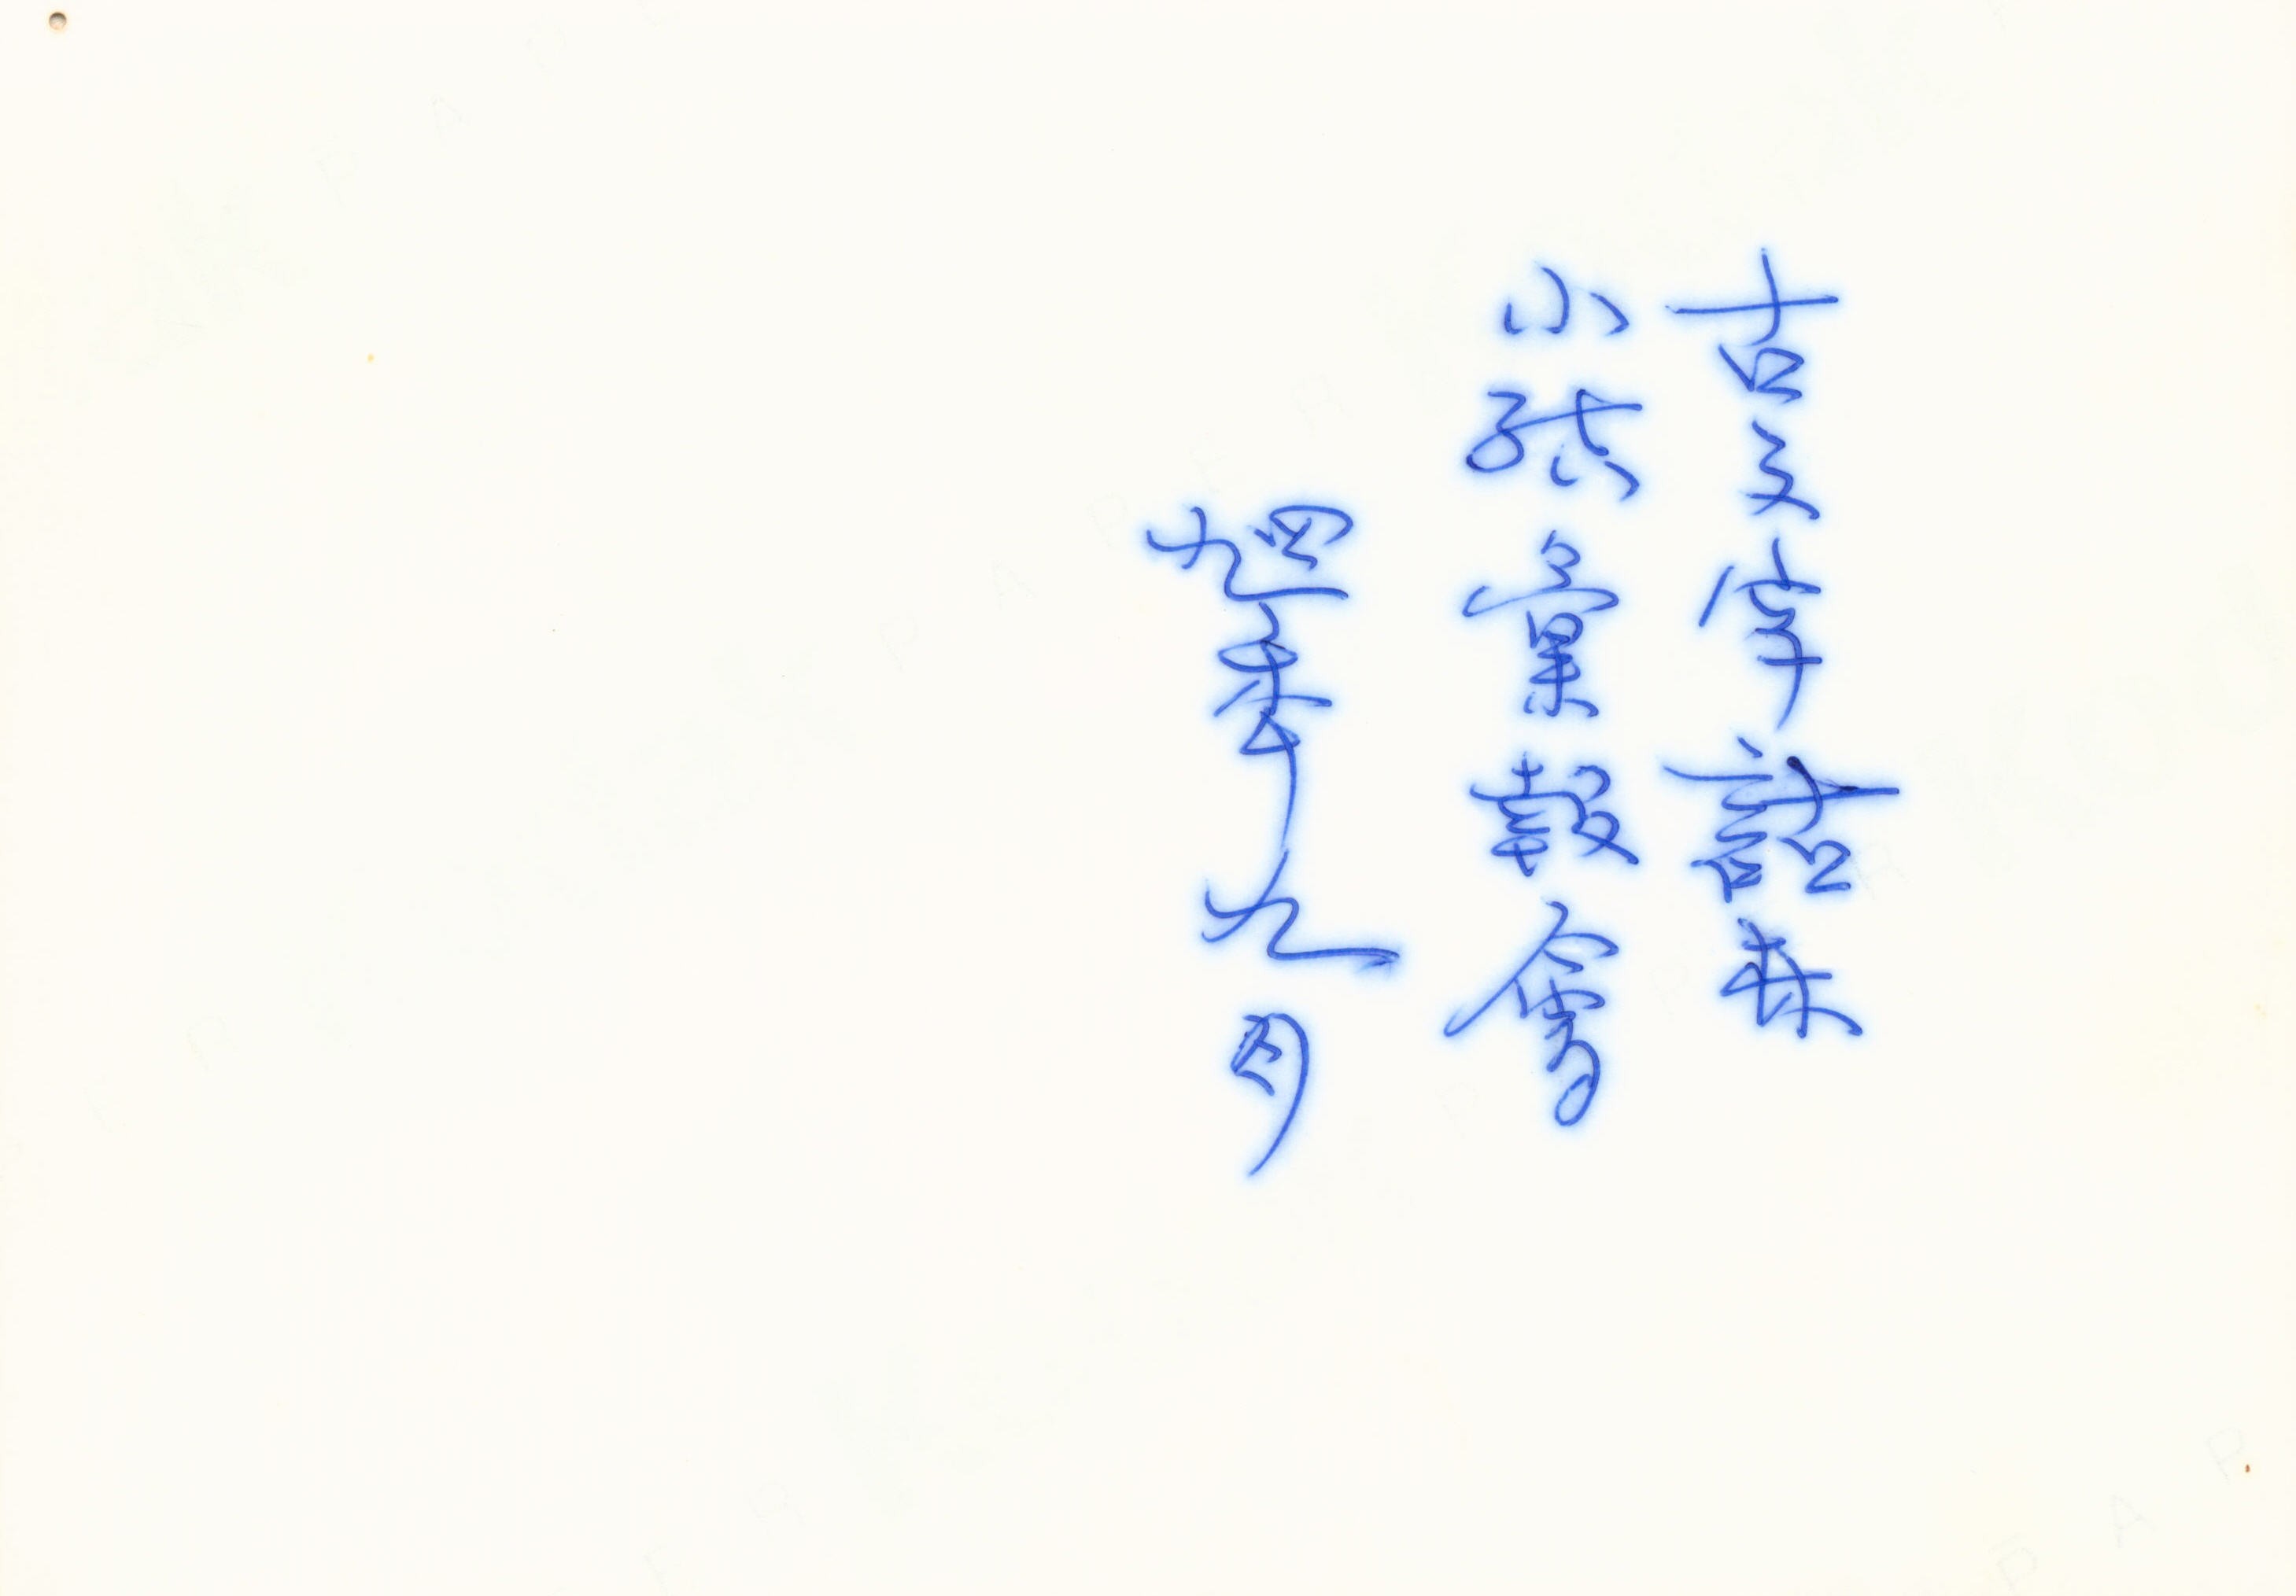 古文字詁林
小张彙報會
九四年九月